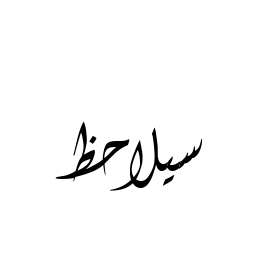 سيلاحظ